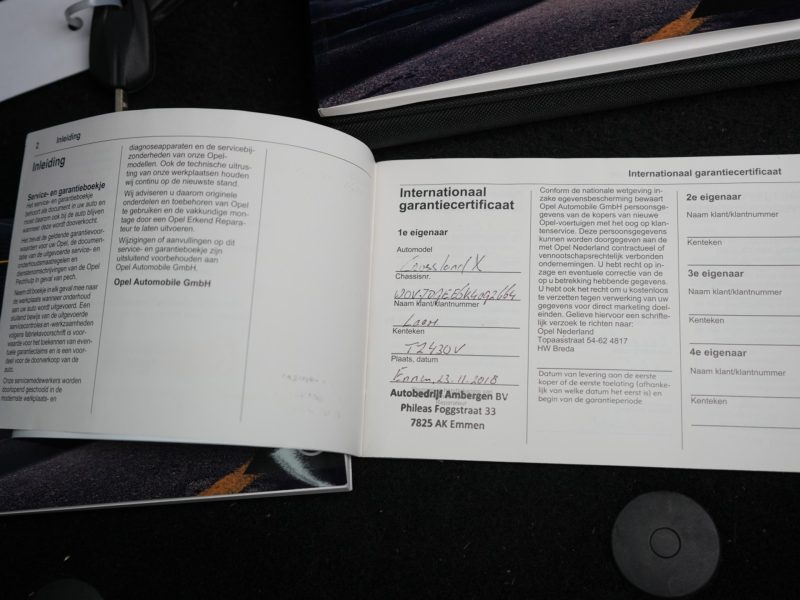 2 Inleiding
Inleiding
Service- en garantieboekje
Het service- en garantieboekje
behoort als document in uw auto en
moet daarom ook bij de auto blijven
wanneer deze wordt doorverkocht.
Het bevat de geldende garantievoor-
waarden voor uw Opel, de documen-
tatie van de uitgevoerde service- en
onderhoudsmaatregelen en
dienstenomschrijvingen van de Opel
Pechhulp in geval van pech.
Neem dit boekje in elk geval mee naar
de werkplaats wanneer onderhoud
aan uw auto wordt uitgevoerd. Een
sluitend bewijs van de uitgevoerde
servicecontroles en -werkzaamheden
volgens fabrieksvoorschrift is voor-
waarde voor het toekennen van even-
tuele garantieclaims en is een voor-
deel voor de doorverkoop van de
auto.
Onze servicemedewerkers worden
doorlopend geschoold in de
modernste werkplaats- en
diagnoseapparaten en de servicebij-
zonderheden van onze Opel-
modellen. Ook de technische uitrus-
ting van onze werkplaatsen houden
wij continu op de nieuwste stand.
Wij adviseren u daarom originele
onderdelen en toebehoren van Opel
te gebruiken en de vakkundige mon-
tage door een Opel Erkend Repara-
teur te laten uitvoeren.
Wijzigingen of aanvullingen op dit
service- en garantieboekje zijn
uitsluitend voorbehouden aan
Opel Automobile GmbH.
Opel Automobile GmbH
Internationaal garantiecertificaat
Internationaal
garantiecertificaat
1e eigenaar
Automodel
Crossland X
Chassisnr.
Naam klant/klantnummer
Kenteken
TZ430V
Plaats, datum
Emmen, 23.11.2018
Autobedrijf Ambergen BV
Phileas Foggstraat 33
7825 AK Emmen
Conform de nationale wetgeving in-
zake egevensbescherming bewaart
Opel Automobile GmbH persoonsge-
gevens van de kopers van nieuwe
Opel-voertuigen met het oog op klan-
tenservice. Deze persoonsgegevens
kunnen worden doorgegeven aan de
met Opel Nederland contractueel of
vennootschapsrechtelijk verbonden
ondernemingen. U hebt recht op in-
zage en eventuele correctie van de
op u betrekking hebbende gegevens.
U hebt ook het recht om u kosteloos
te verzetten tegen verwerking van uw
gegevens voor direct marketing doel-
einden. Gelieve hiervoor een schrifte-
lijk verzoek te richten naar:
Opel Nederland
Topaasstraat 54-62 4817
HW Breda
Datum van levering aan de eerste
koper of de eerste toelating (afhanke-
lijk van welke datum het eerst is) en
begin van de garantieperiode
2e eigenaar
Naam klant/klantnummer
Kenteken
3e eigenaar
Naam klant/klantnummer
Kenteken
4e eigenaar
Naam klant/klantnummer
Kenteken